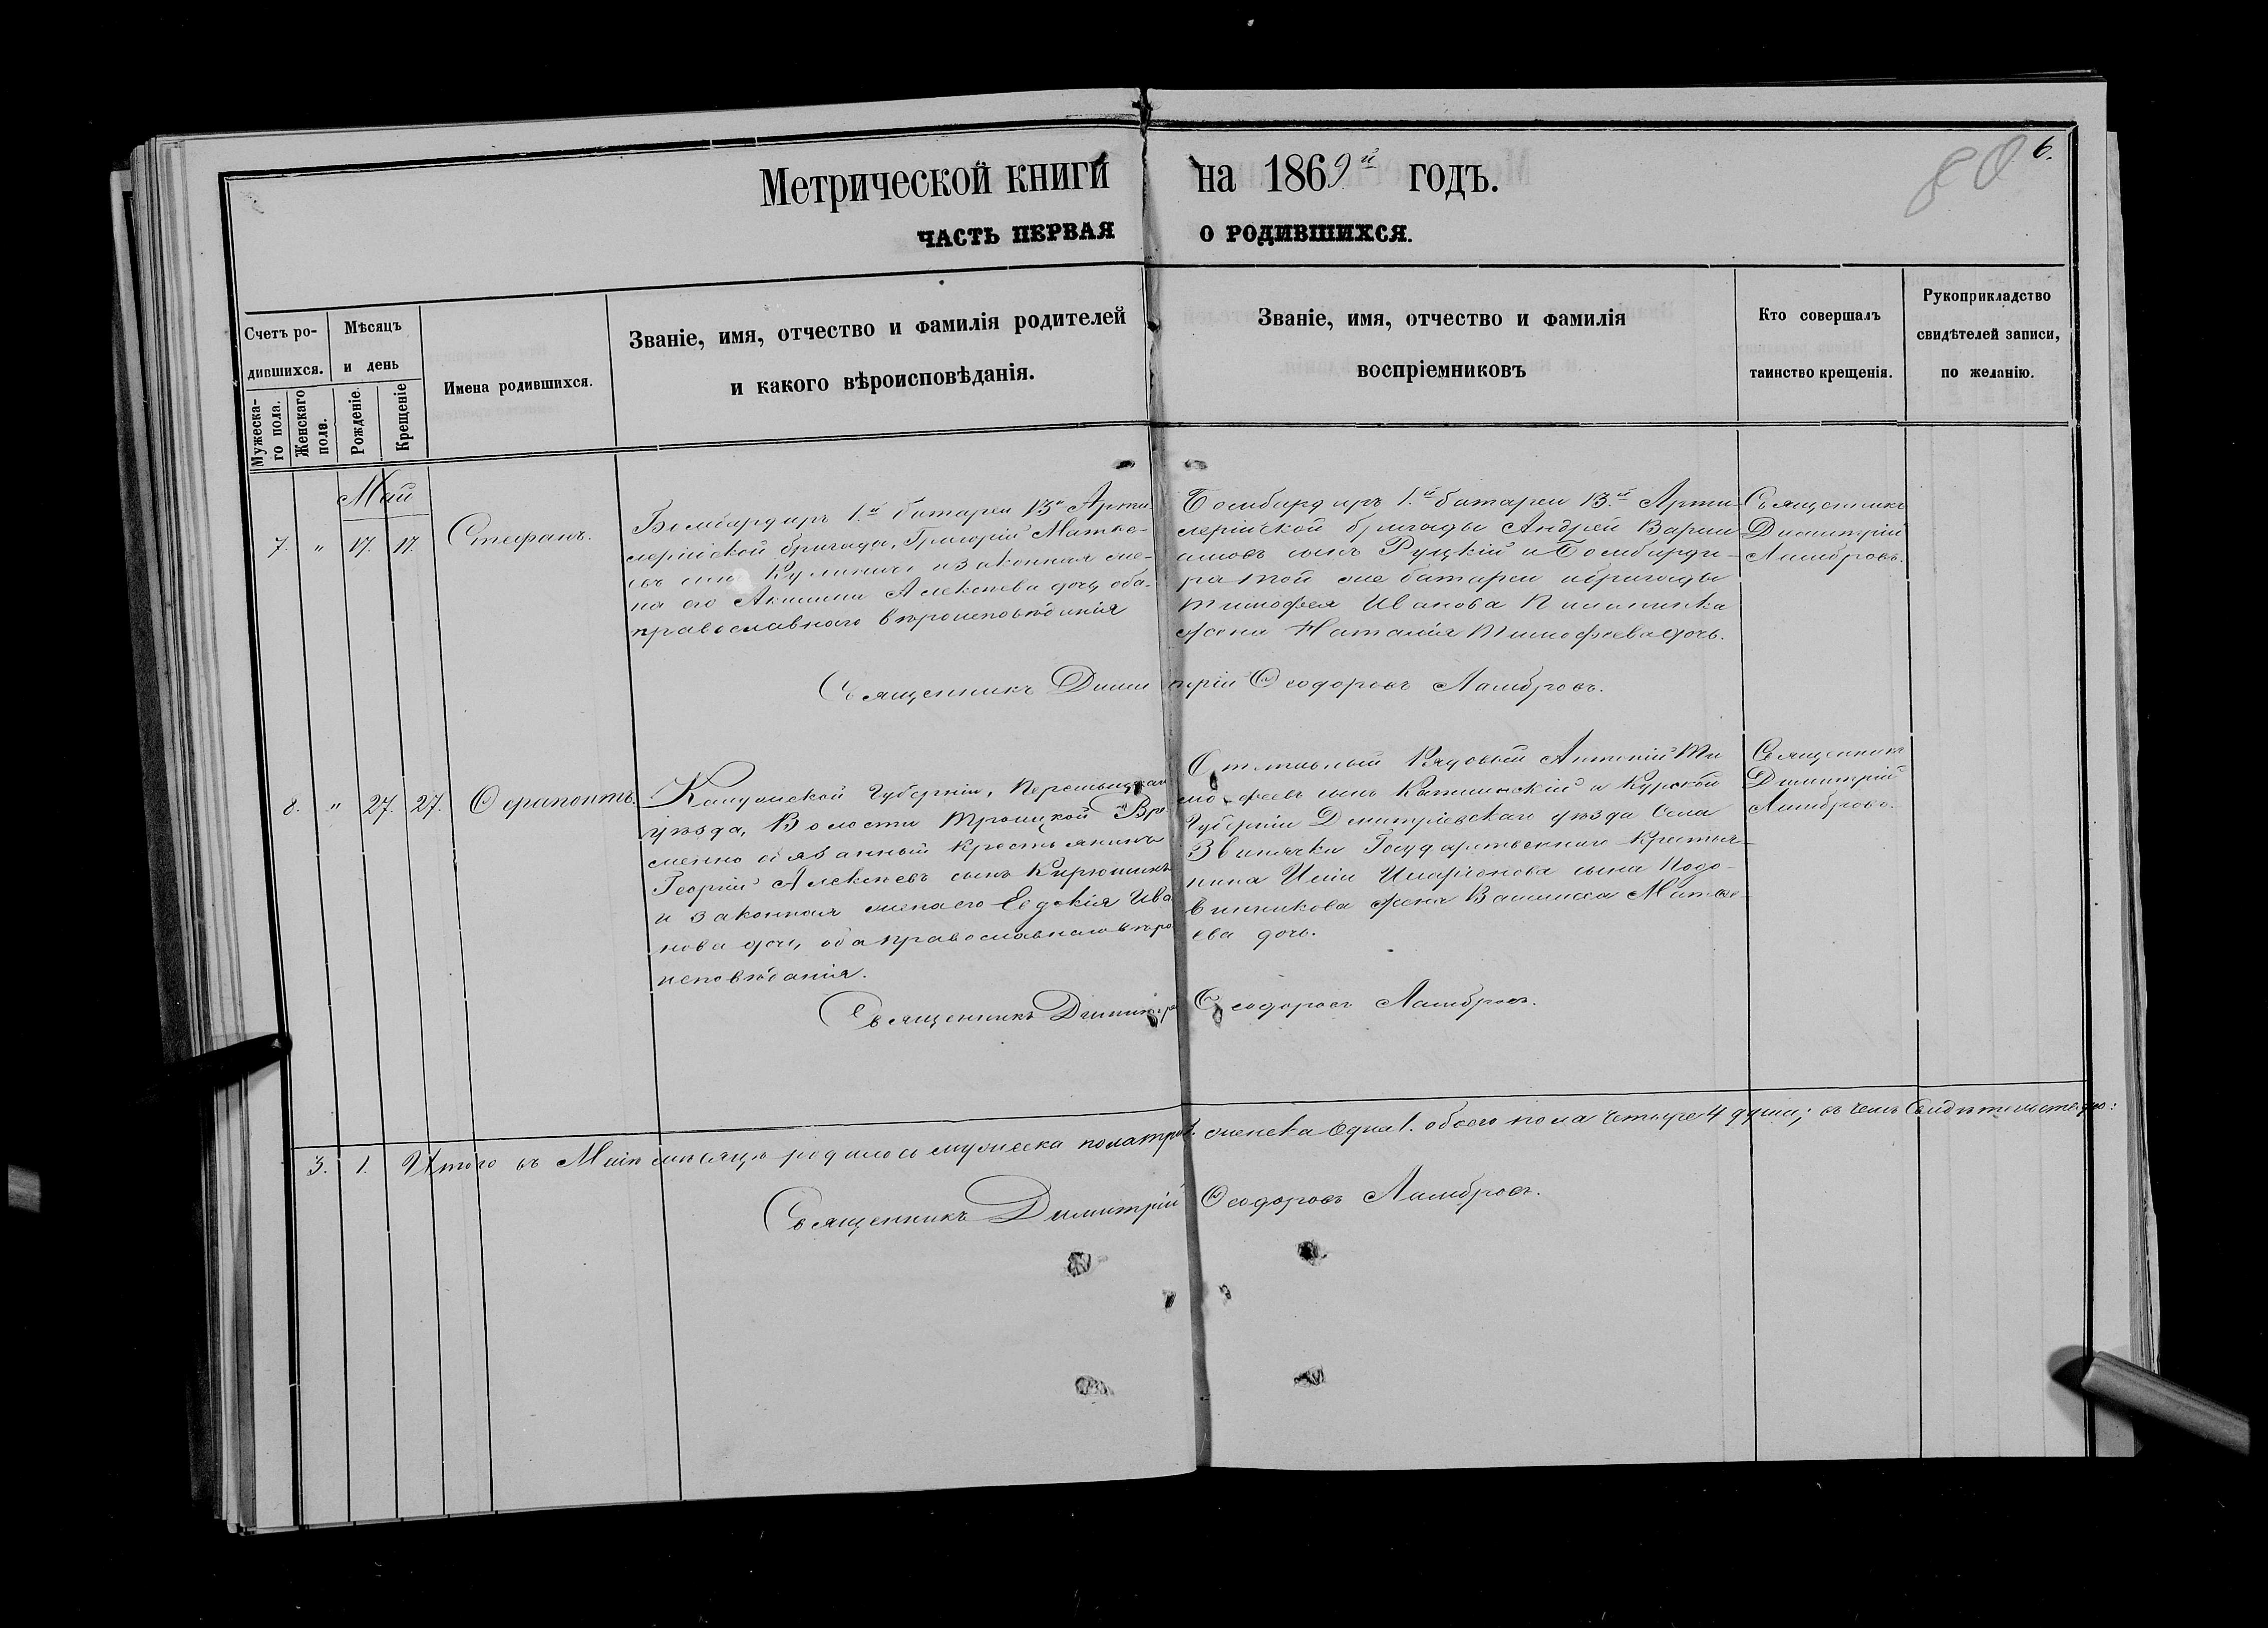 Метрической книги на 1869й годъ.
80 6.
ЧАСТЬ ПЕРВАЯ О РОДИВШИХСЯ.
Счетъ ро-
дившихся.
Мужеска-
го пола.
Женскаго
пола.
Мѣсяцъ
и день
Рожденіе.
Крещеніе
Имена родившихся.
Званіе, имя, отчество и фамилія родителей
и какого вѣроисповѣданія.
Званіе, имя, отчество и фамилія
воспріемниковъ
Кто совершалъ
таинство крещенія.
Рукоприкладство
свидѣтелей записи,
по желанію.
Май
7. " 17. 17. Стефанъ.
Бомбардиръ 1.й батареи 13й Арти
лерійской бригады, Григорій Матвѣ-
евъ сынъ и законная же-
на его Алексѣева дочь, оба
православнаго вѣроисповѣданія
Бомбардиръ 1.й батареи 13.й Арти
лерійской бригады Андрей
сынъ Руцкій и Бомбарди-
ра той же батареи и бригады
Тимофея Иванова
жена Наталія Тимофеева дочь.
Священникъ
Димитрій
Ламбровъ.
Священникъ Димитрій Ѳеодоровъ Ламбровъ.
8. " 27. 27. Ѳерапонтъ.
Калужской Губерніи, Перемышскаго
уѣзда, Волости Троицкой Вре
менно обязанный крестьянинъ
Георгій Алексѣевъ сынъ Кирюшинъ
и законная жена его Евдокія Ива
нова дочь, оба православнаго вѣро
исповѣданія.
Отставный Рядовый Антоній Ти
мофеевъ сынъ и Курской
Губерніи Дмитріевскаго уѣзда Села
Званячки Государственнаго Крестья-
нина Иліи Иларіонова сына
жена Василиса Матве-
ева дочь.
Священникъ
Димитрій
Ламбровъ.
Священникъ Димитрій Ѳеодоровъ Ламбровъ.
3. 1. Итого въ Маѣ мѣсяцѣ родилось мужеска пола три 3. женска одна 1. обоего пола четыре 4 души; въ чемъ свидѣтельствую:
Священникъ Димитрій Ѳеодоровъ Ламбровъ.